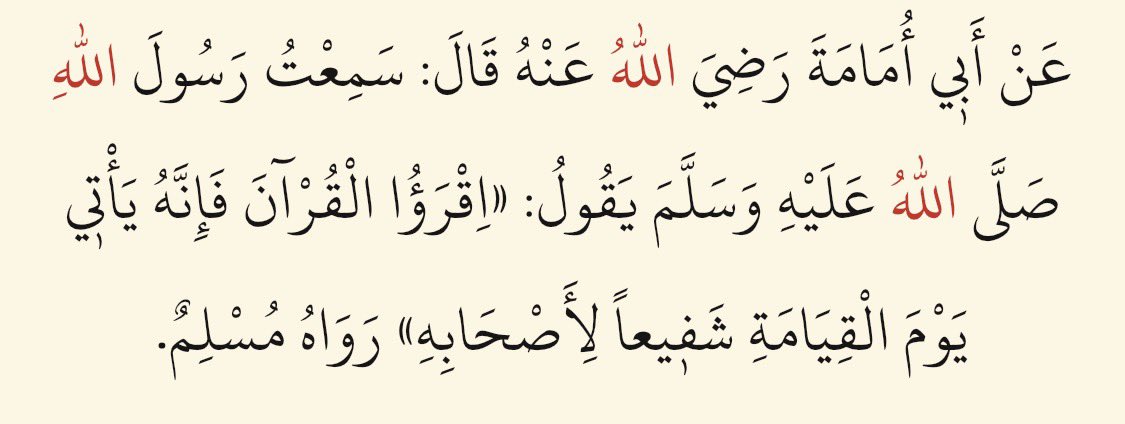 عَنْ أَبِي أُمَامَةَ رَضِيَ اللهُ عَنْهُ قَالَ: سَمِعْتُ رَسُولَ اللهِ
صَلَّى اللهُ عَلَيْهِ وَسَلَّمَ يَقُولُ: «اِقْرَؤُا الْقُرْآنَ فَإِنَّهُ يَأْتِي
يَوْمَ الْقِيَامَةِ شَفِيعاً لِأَصْحَابِهِ» رَوَاهُ مُسْلِمٌ.